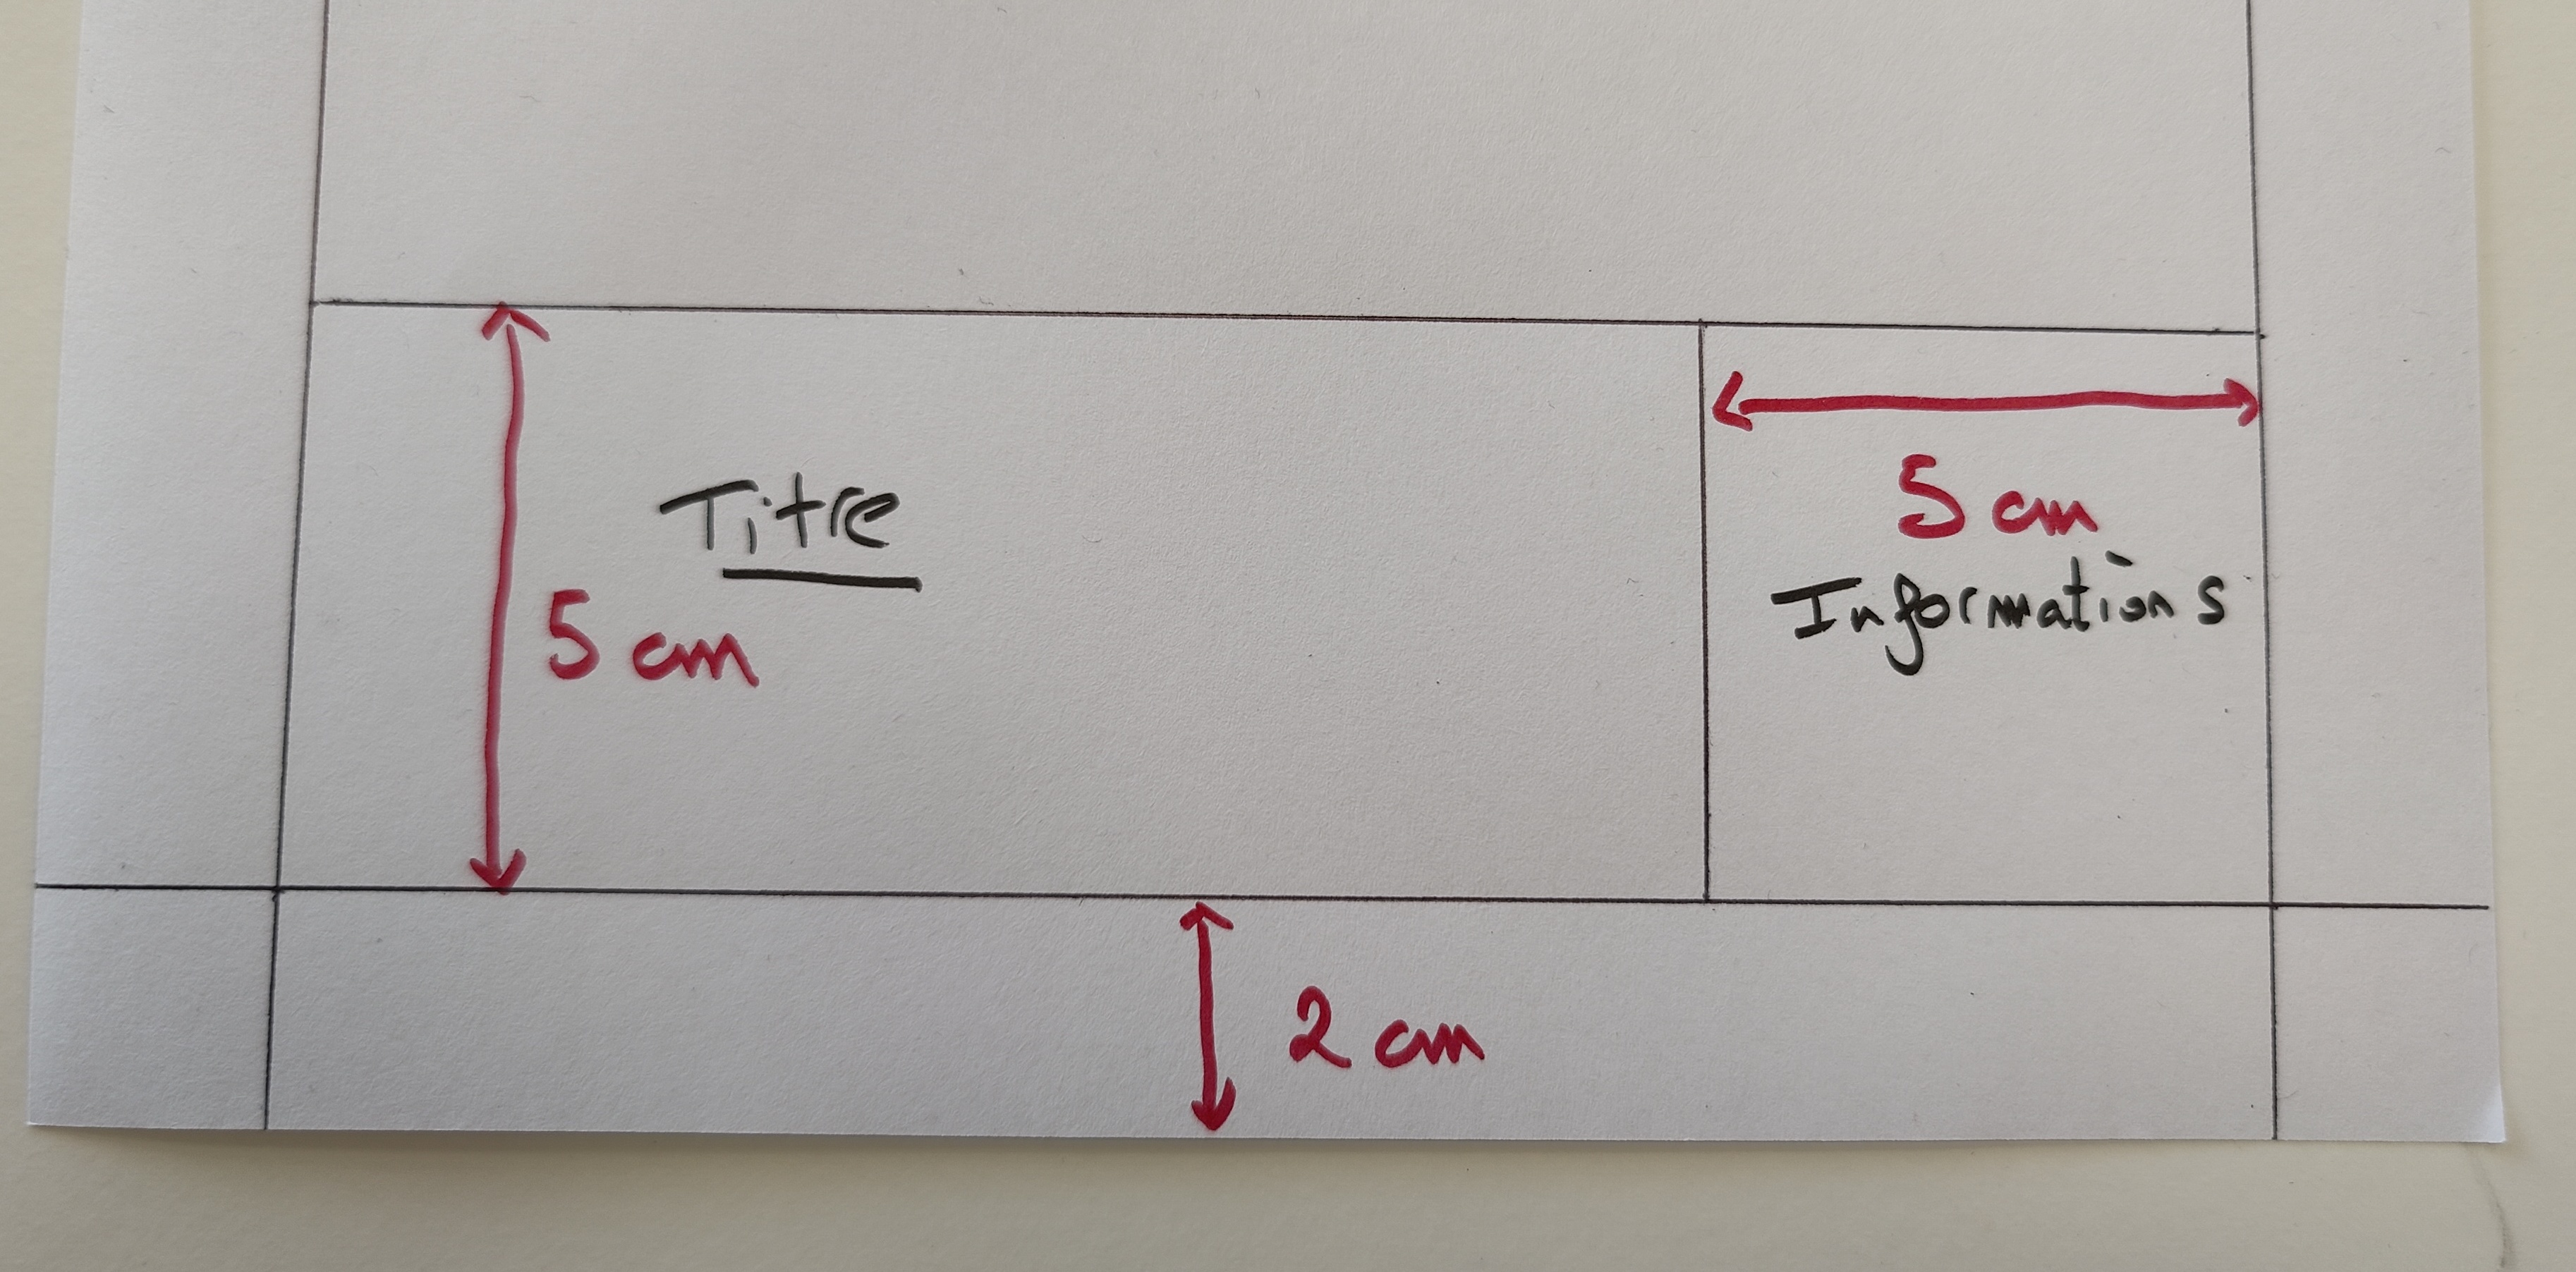 Titre
5 cm
5 cm
Informations
2 cm